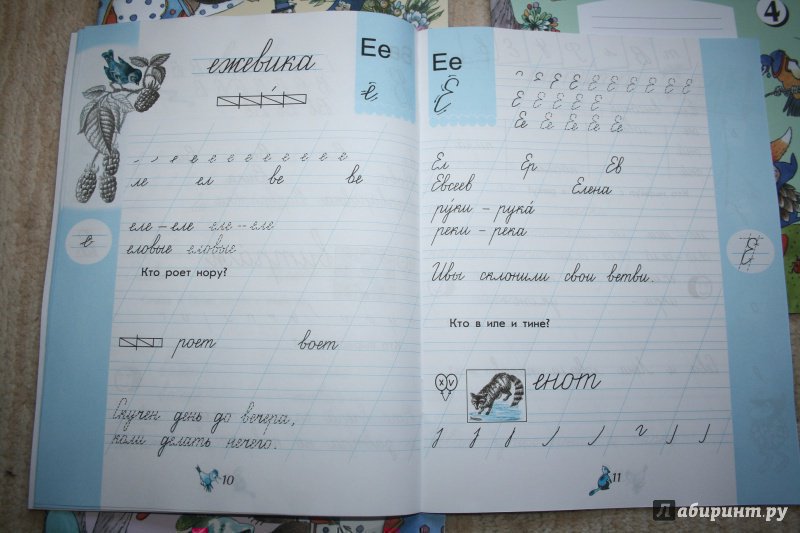 ежевика
Ее
е
е е е е е е е е е
ле ел ве ве
еле – еле еле – еле
еловые еловые
е
Кто роет нору?
роет воет
Скучен день до вечера,
коли делать нечего.
10
Ее
Е
Е Е Е Е Е Е Е Е
Е Е Е Е Е
Ее Ее Ее Ее Ее
Ел Ер Ев
Евсеев Елена
ру́ки – рука́
реки – река
Е
Ивы склонили свои ветви.
Кто в иле и тине?
x v
енот
11
4
Лабиринт.ру